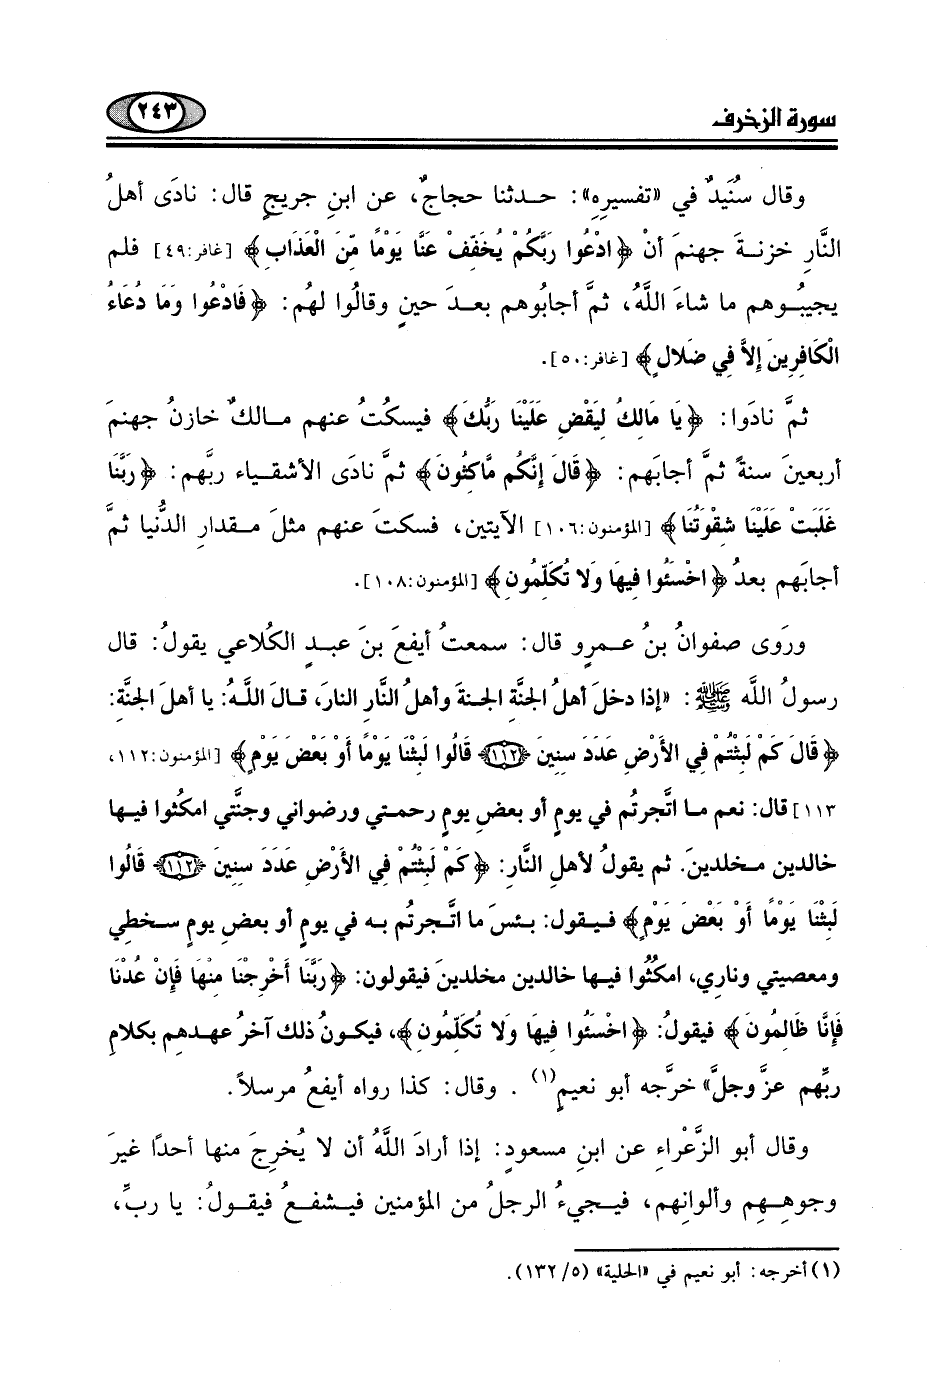 سورة الزخرف
٢٤٣
وقال سُنَيدٌ في «تفسيرِه»: حـدثنا حجاجٌ، عن ابنِ جريجٍ قال: نادَى أهلُ
النَّارِ خزنـةَ جهنمَ أنْ ﴿ادْعُوا رَبَّكُمْ يُخَفِّفْ عَنَّا يَوْمًا مِّنَ الْعَذَابِ﴾ [غافر:٤٩] فلم
يجيبُـوهم ما شاءَ اللَّهُ، ثمَّ أجابُوهم بعـدَ حينٍ وقالُوا لهُم: ﴿فَادْعُوا وَمَا دُعَاءُ
الْكَافِرِينَ إِلاَّ فِي ضَلالٍ﴾ [غافر:٥٠].
ثمَّ نادَوا: ﴿يَا مَالِكُ لِيَقْضِ عَلَيْنَا رَبُّكَ﴾ فيسكتُ عنهم مـالكٌ خازنُ جهنمَ
أربعينَ سنةً ثمَّ أجابَهم: ﴿قَالَ إِنَّكُم مَّاكِثُونَ﴾ ثمَّ نادَى الأشقـياء ربَّهم: ﴿رَبَّنَا
غَلَبَتْ عَلَيْنَا شِقْوَتُنَا﴾ [المؤمنون:١٠٦] الآيتين، فسكتَ عنهم مثلَ مـقدارِ الدُّنيا ثمَّ
أجابَهم بعدُ ﴿اخْسَئُوا فِيهَا وَلا تُكَلِّمُونِ﴾ [المؤمنون:١٠٨].
ورَوى صفوانُ بنُ عـمرٍو قال: سمعتُ أيفعَ بنَ عبـدٍ الكُلاعي يقولُ: قال
رسولُ اللَّه ﷺ: «إذا دخلَ أهلُ الجنَّة الجـنةَ وأهلُ النَّار النارَ، قـالَ اللَّهُ: يا أهلَ الجنَّة:
﴿قَالَ كَمْ لَبِثْتُمْ فِي الأَرْضِ عَدَدَ سِنِينَ ﴿١١٢﴾ قَالُوا لَبِثْنَا يَوْمًا أَوْ بَعْضَ يَوْمٍ﴾ [المؤمنون:١١٢،
١١٣] قال: نعم مـا اتَّجرتُم في يومٍ أو بعضِ يومٍ رحمـتي ورضواني وجنَّتي امكثُوا فيـها
خالدين مـخلدينَ. ثم يقولُ لأهلِ النَّارِ: ﴿كَمْ لَبِثْتُمْ فِي الأَرْضِ عَدَدَ سِنِينَ ﴿١١٢﴾ قَالُوا
لَبِثْنَا يَوْمًا أَوْ بَعْضَ يَوْمٍ﴾ فـيقول: بـئسَ ما اتَّجرتُم بـه في يومٍ أو بعضِ يومٍ سـخطِي
ومعصيتي وناري، امكُثُوا فيـها خالدين مخلدينَ فيقولون: ﴿رَبَّنَا أَخْرِجْنَا مِنْهَا فَإِنْ عُدْنَا
فَإِنَّا ظَالِمُونَ﴾ فيقولُ: ﴿اخْسَئُوا فِيهَا وَلا تُكَلِّمُونِ﴾، فيكـونُ ذلك آخرُ عهـدِهم بكلامِ
ربِّهم عزَّ وجلَّ» خرَّجه أبو نعيمٍ(١) . وقال: كذا رواه أيفعُ مرسلاً.
وقال أبو الزَّعْراءِ عن ابنِ مسعودٍ: إذا أرادَ اللَّهُ أن لا يُخرِجَ منها أحدًا غيرَ
وجوهِـهم وألوانِهم، فيـجيءُ الرجلُ من المؤمنين فيـشفـعُ فيقـولُ: يا ربِّ،
(١) أخرجه: أبو نعيم في «الحلية» (٥/ ١٣٢).